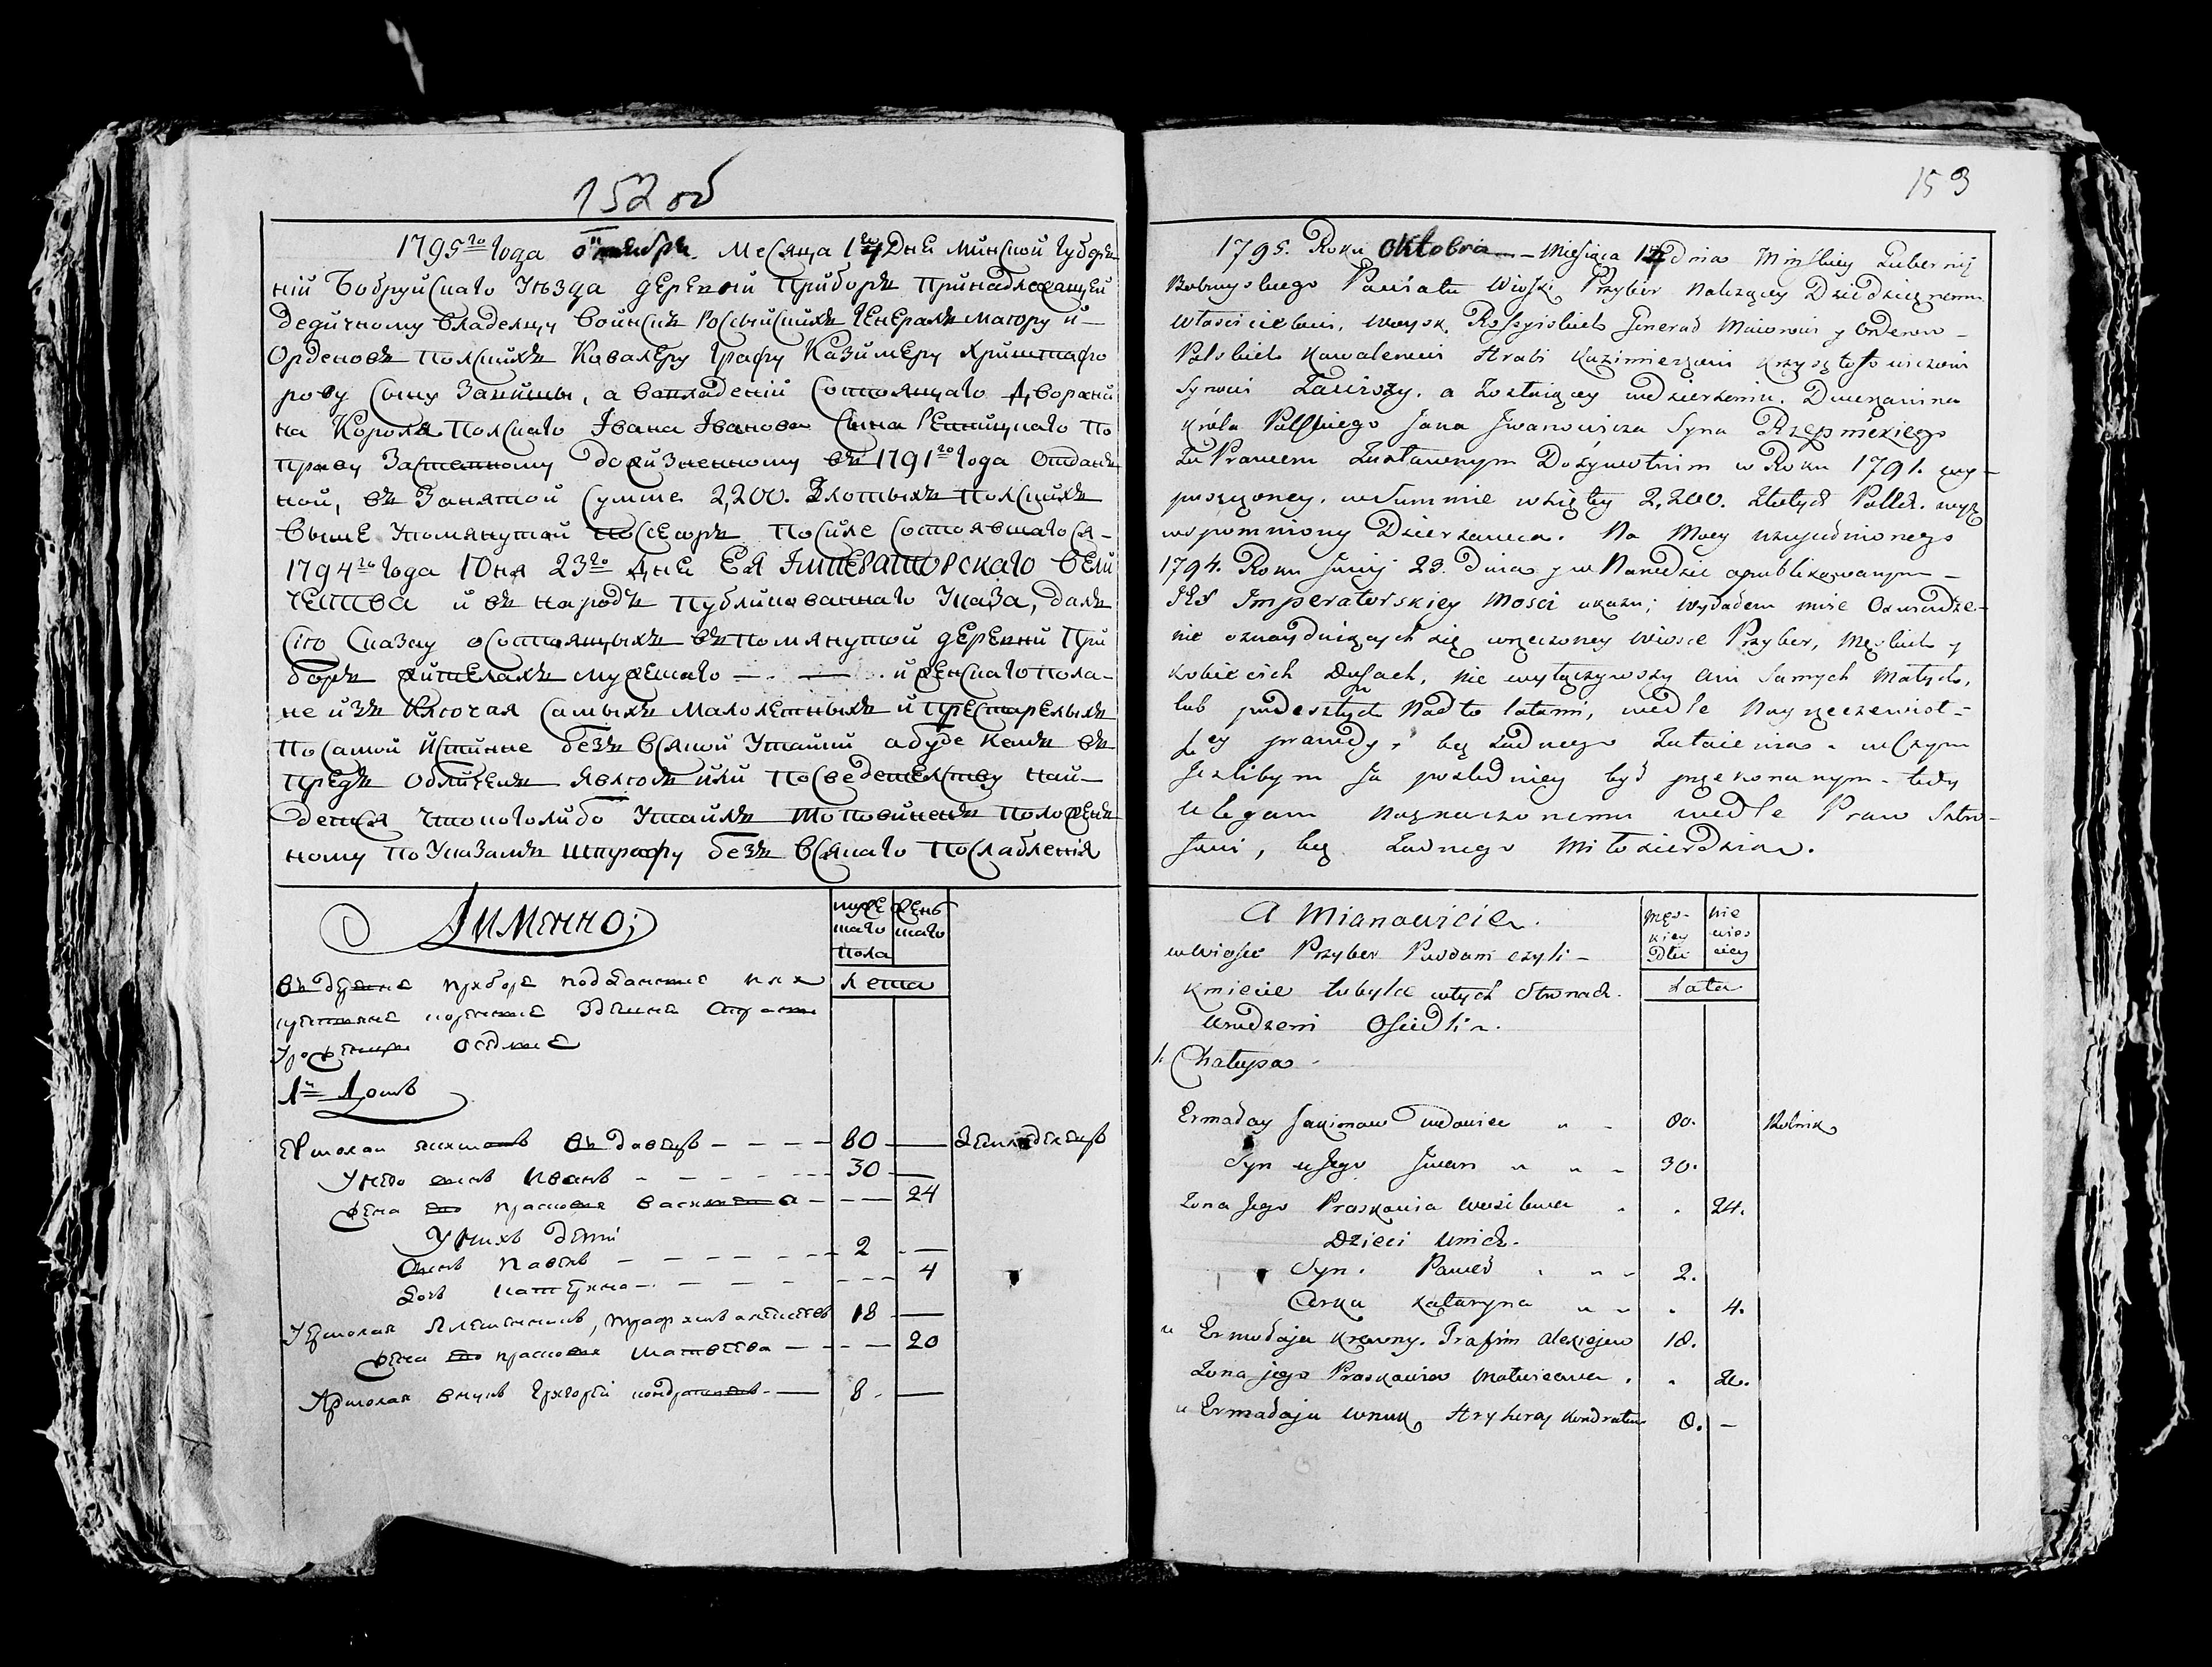 152 об
1795го Года октебря Месяца 17 Дня Минской Губер
ніи Бобруйскаго Уѣзда деревни Приборъ Принадлежащей
дедичному владелцу воинскъ Россыйскихъ Генералъ маиору и
Орденовъ полскихъ Кавалеру Графу Казимеру Криштафо
рову сыну Завишы, а ва владеніи состоящаго Дворани
на Короля полскаго Івана Іванова сына Репницкаго по
праву заставному дожизненному въ 1791го Года отдан
ной, въ занятой сумме 2,200. Злотыхъ полскихъ
выше упомянутой посесоръ после состоявшагося
1794го Года Июня 23го дня Ея Императорскаго вели
чества и въ народъ публикованнаго Указа, далъ
сію сказку о состоящыхъ въ помянутой деревни При
боръ жителахъ мужескаго — . — . и женскаго пола
не изъ ключая самыхъ малолетныхъ и престарелыхъ
по самой истинне безъ всякой утайки а буде кемъ въ
предъ обличемъ явлюсь или по сведетелству най
детса что коголибо утаилъ то повиненъ положен
ному по указамъ штрафу безъ всякаго послабленія
А имянно;
муже женъ
скаго скаго
пола
лета
въ деревне приборе подданые или
крестьяне коренные здешне
уроженцы оседлые
1й Домъ
Ермолай якимовъ вдовецъ — — — — 80 — земледелецъ
У него сынъ Иванъ — — — — — 30 —
жена его прасковя василева — — — 24
У нихъ дети
сынъ павелъ — — — — — 2 —
дочь катерина — — — — — 4
У ермолая племенникъ, трафимъ алексеевъ 18 —
жена его прасковя матвеева — — — 20
Ермолая внукъ Григорей кондратовъ — 8 —
153
1795. Roku Oktobra — Miesiąca 17 dnia Minskiey Gubernij
Bobruyskiego Powiatu Wioski Przybor Należącey Dziedzicznemu
Włascicielowi, Woysk. Rossyiskich Generał Maiorowi y Orderow
Polskich Kawalerowi Hrabi Kazimierzowi Krzysztofowiczowi
Synowi Zawiszy. a Zostaiącey w dzierżeniu. Dworzanina
Króla Polskiego Jana Iwanowicza Syna Rzepnickiego
Za Prawem Zastawnym Dożywotnim w Roku 1791. wy-
puszczoney. w Summie wziętey 2,200. Złotych Polsk. wyż
wspomniony Dzierżawca. Na Mocy uzupełnionego
1794. Roku Junij 23. Dnia y w Narodzie opublikowanym
JEJ Imperatorskiey Mosci ukazu; wydałem moie Oswiadcze-
nie o znayduiących się w rzeczoney wiosce Przybor, Męskich y
kobiecich Duszach, nie wyłączywszy ani samych Małych,
lub podeszłych Nad to latami, wedle Nayrzeczewist-
szey prawdy, bez żadnego Zataienia. w Czym
Jezlibym Ja posledniey był przekonanym. tedy
Ulegam Naznaczonemu wedle Praw Sztra-
fowi, bez żadnego Miłosierdzia.
A Mianowicie.
Męs- nie
kiey wies
Płci ciey
Lata
w Wiosce Przybor Poddani czyli
Kmiecie tubylce w tych Stronach
Urodzeni Osiedli.
1. Chałupa.
Ermałay Jakimow wdowiec 80. Rolnik
Syn u Jego Iwan 30.
Żona Jego Praskowia Wasilewa 24.
Dzieci U nich.
Syn. Paweł 2.
Corka Kataryna 4.
u Ermołaja krewny. Trafim Alexiejew 18.
Żona jego Praskowia Matwieewa 20.
u Ermałaja wnuk Hryhoray Kondratow 8. —